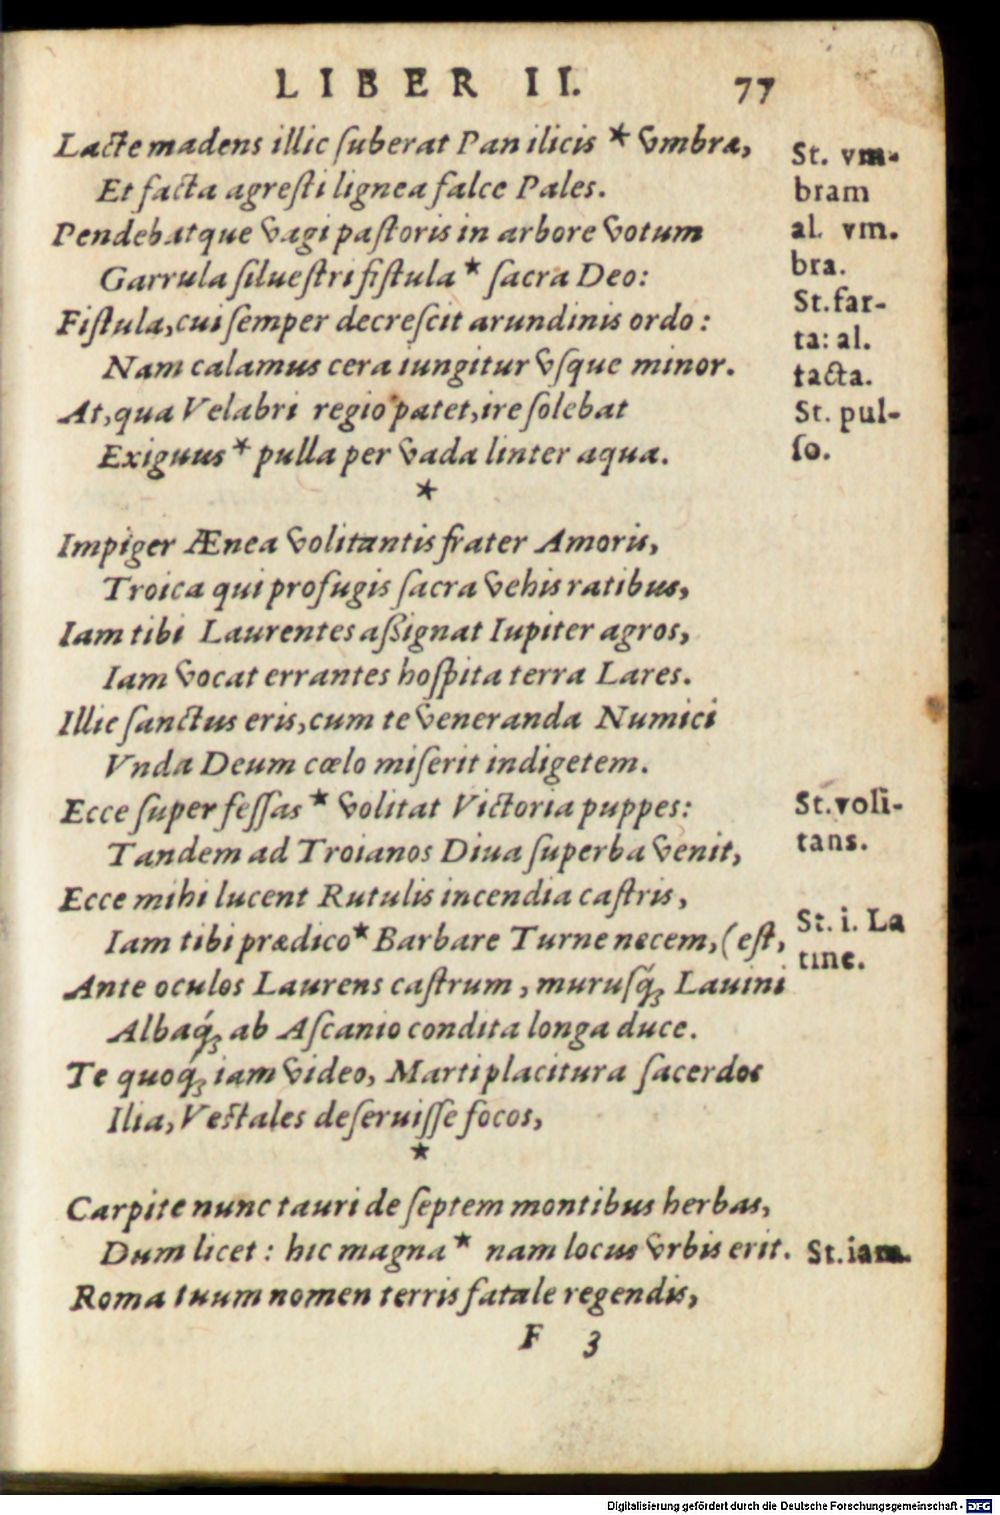 LIBER II. 77
Lacte madens illic ſuberat Pan ilicis * vmbræ,
Et facta agreſti lignea falce Pales.
Pendebatque vagi paſtoris in arbore votum
Garrula ſilueſtri fiſtula * ſacra Deo:
Fiſtula, cui ſemper decreſcit arundinis ordo:
Nam calamus cera iungitur vſque minor.
At, qua Velabri regio patet, ire ſolebat
Exiguus * pulla per vada linter aqua.
*
Impiger Ænea volitantis frater Amoris,
Troica qui profugis ſacra vehis ratibus,
Iam tibi Laurentes aßignat Iupiter agros,
Iam vocat errantes hoſpita terra Lares.
Illic ſanctus eris, cum te veneranda Numici
Vnda Deum cœlo miſerit indigetem.
Ecce ſuper feſſas * volitat Victoria puppes:
Tandem ad Troianos Diua ſuperba venit,
Ecce mihi lucent Rutulis incendia caſtris,
Iam tibi prædico * Barbare Turne necem, (eſt,
Ante oculos Laurens caſtrum, muruſq́ꝫ Lauini
Albaq́ꝫ ab Aſcanio condita longa duce.
Te quoq́ꝫ iam video, Marti placitura ſacerdos
Ilia, Veſtales deſeruiſſe focos,
*
Carpite nunc tauri de ſeptem montibus herbas,
Dum licet: hic magna * nam locus vrbis erit.
Roma tuum nomen terris fatale regendis,
F 3
St. vm-
bram
al. vm.
bra.
St. far-
ta: al.
tacta.
St. pul-
ſo.
St. voli-
tans.
St. i. La
tine.
St. iam.
Digitalisierung gefördert durch die Deutsche Forschungsgemeinschaft - DFG